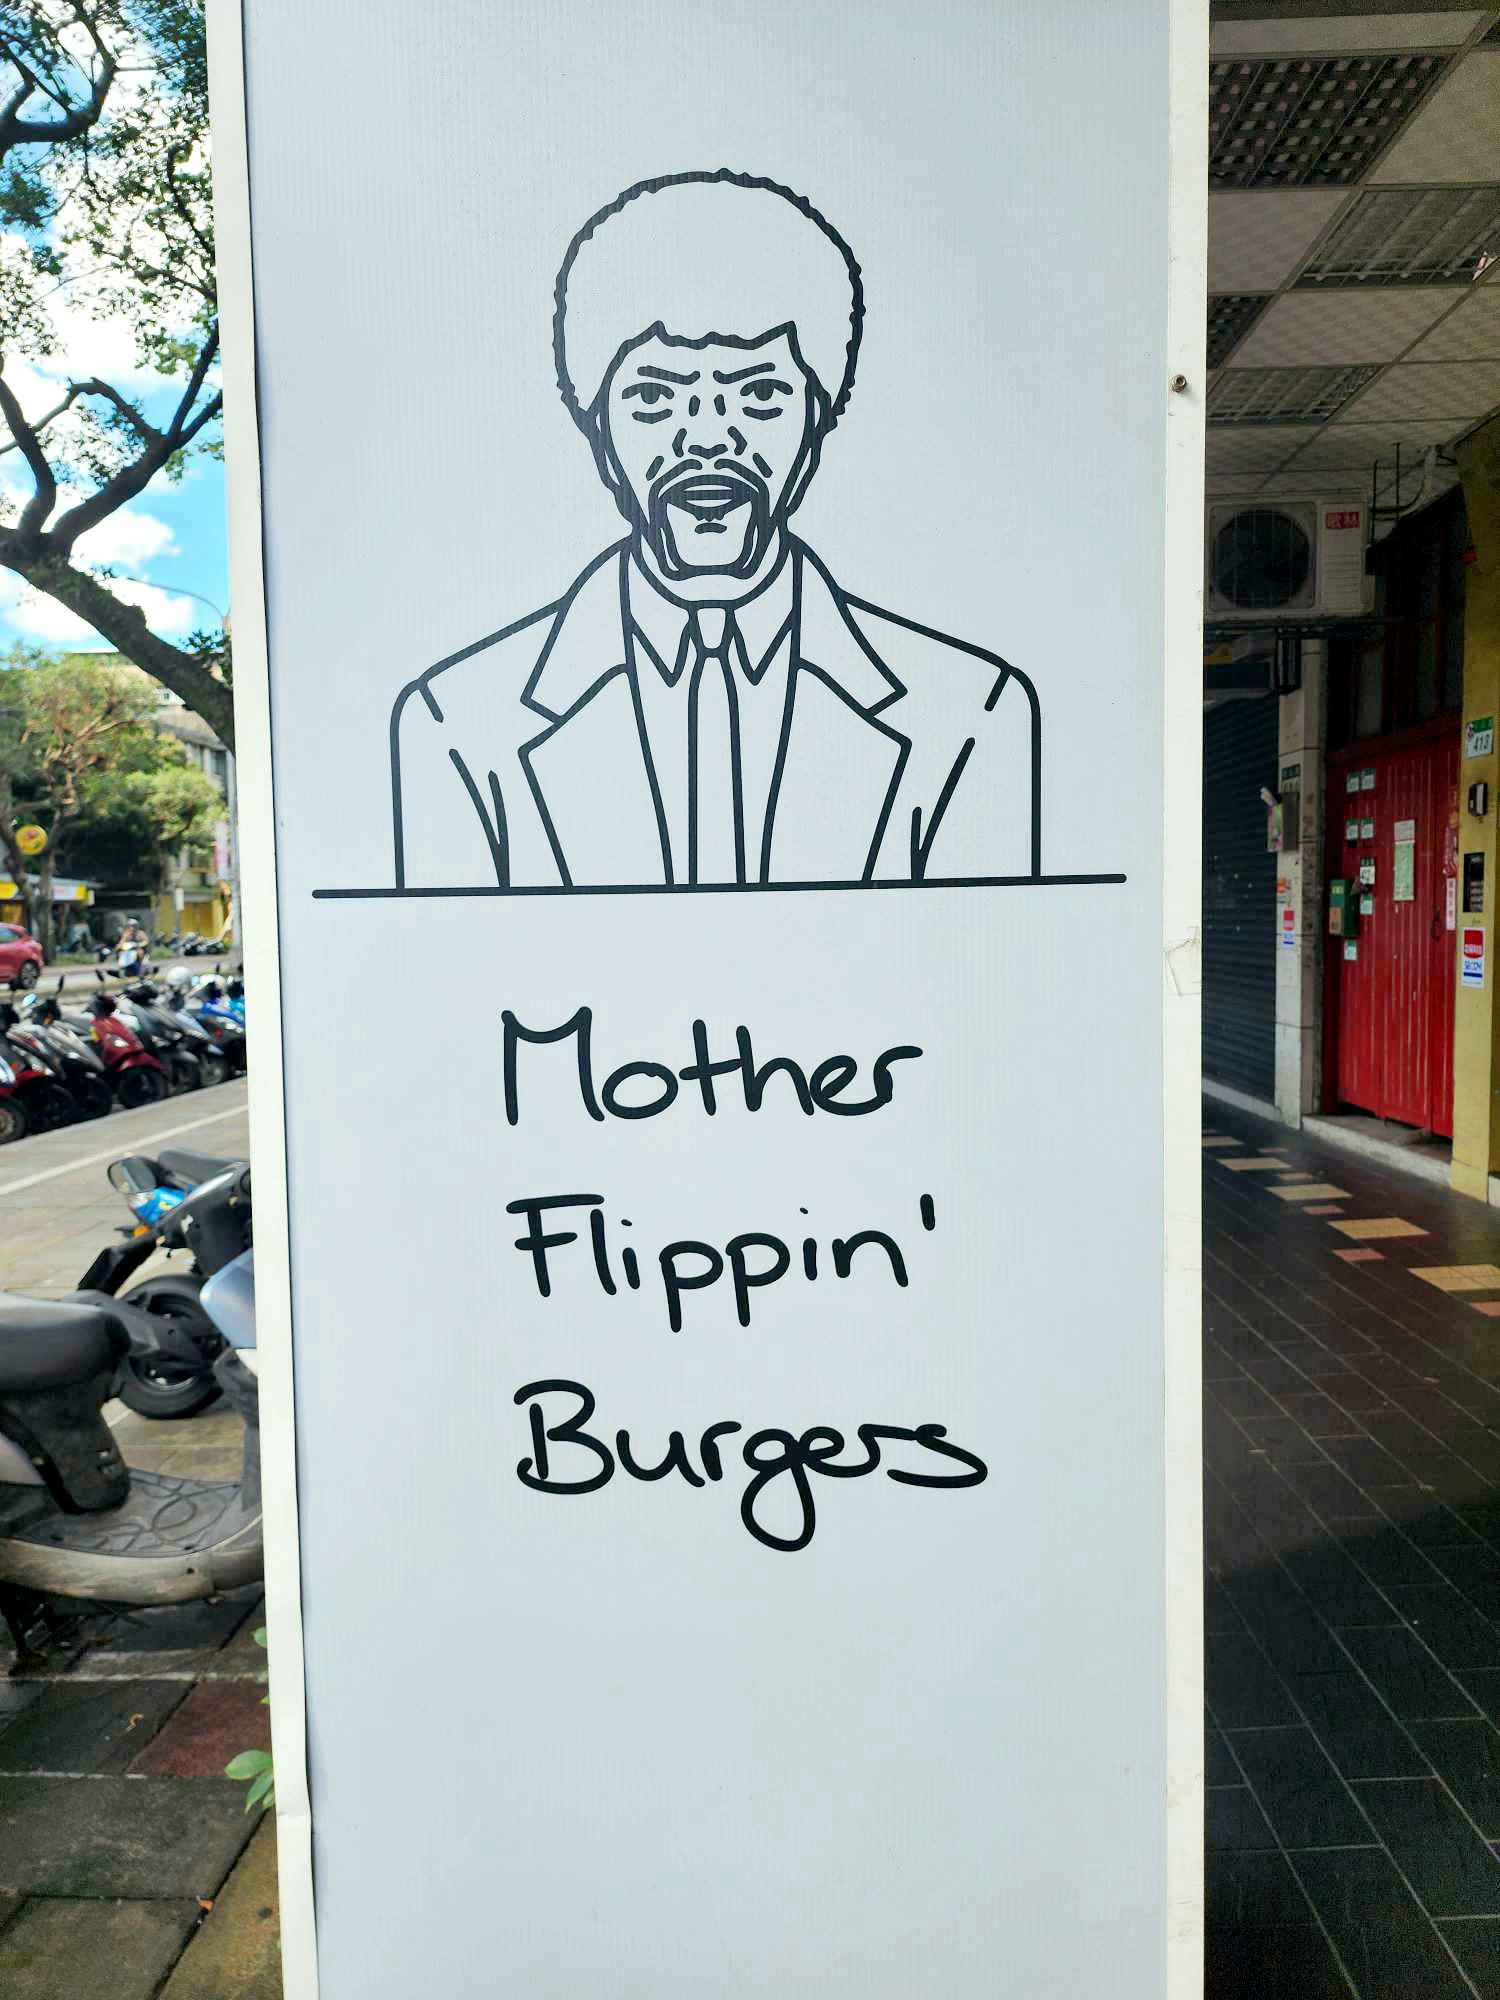 Mother
Flippin'
Burgers
413